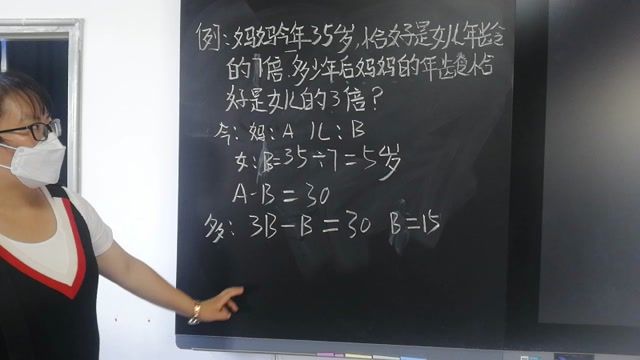 例:妈妈今年35岁,恰好是女儿年龄
的7倍,多少年后妈妈的年龄恰
好是女儿的3倍?
今:妈:A 儿:B
女:B=35÷7=5岁
A-B=30
多:3B-B=30 B=15